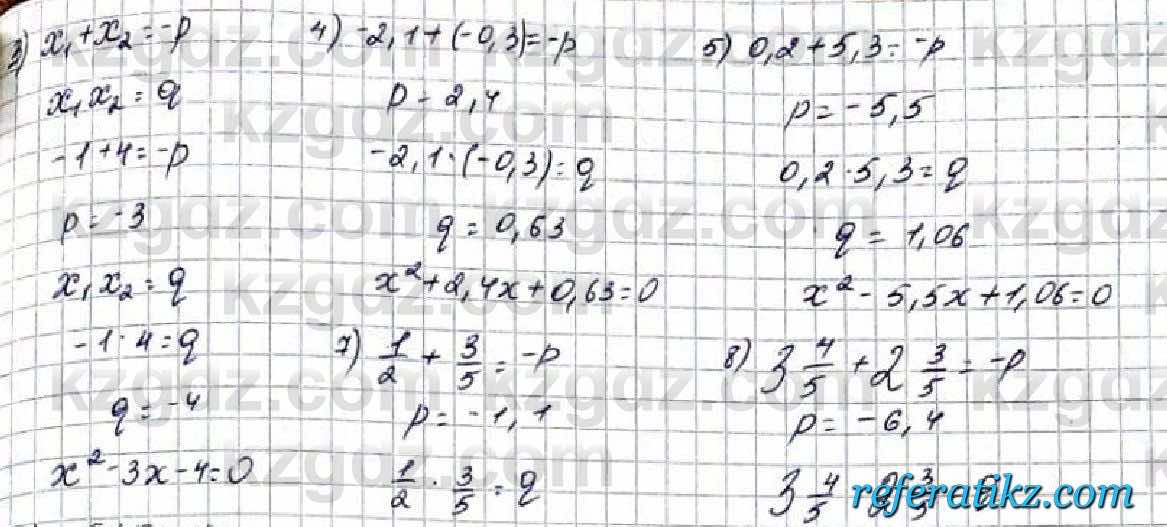 3) x₁+x₂=-p
x₁x₂=q
-1+4=-p
p=-3
x₁x₂=q
-1·4=q
q=-4
x²-3x-4=0
4) -2,1+(-0,3)=-p
p=2,4
-2,1·(-0,3)=q
q=0,63
x²+2,4x+0,63=0
7) 1/2 + 3/5 = -p
p=-1,1
1/2 · 3/5 = q
5) 0,2+5,3=-p
p=-5,5
0,2·5,3=q
q=1,06
x²-5,5x+1,06=0
8) 3 4/5 + 2 3/5 = -p
p=-6,4
3 4/5
referatikz.com
kzgdz.com